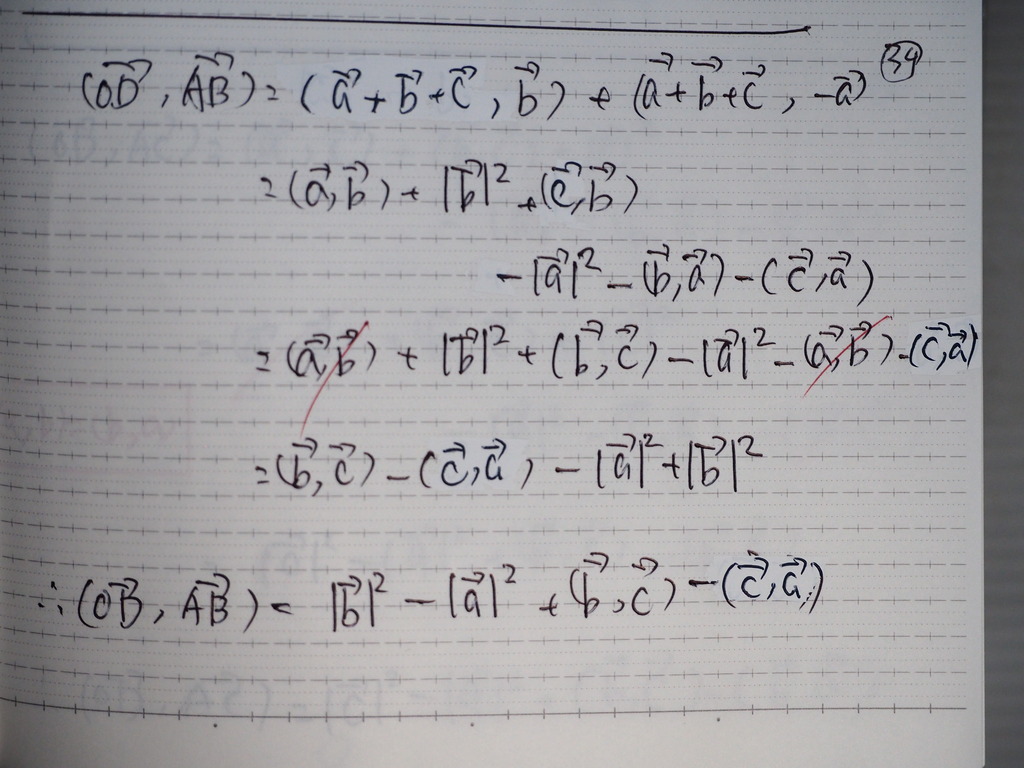 (→OD, →AB) = (→a + →b + →c, →b) + (→a + →b + →c, -→a) ㉞
= (→a, →b) + |→b|² + (→c, →b)
- |→a|² - (→b, →a) - (→c, →a)
= (→a, →b) + |→b|² + (→b, →c) - |→a|² - (→a, →b) - (→c, →a)
= (→b, →c) - (→c, →a) - |→a|² + |→b|²
∴ (→OB, →AB) = |→b|² - |→a|² + (→b, →c) - (→c, →a)